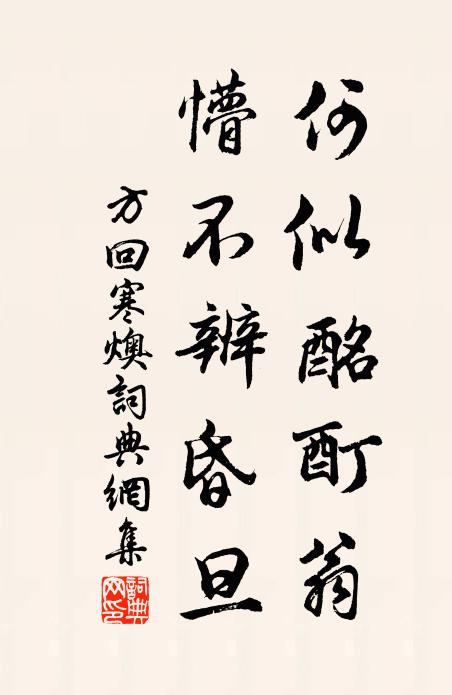 何似酩酊翁
懵不辨昏旦
方回寒燠詞典網集
詞典網印